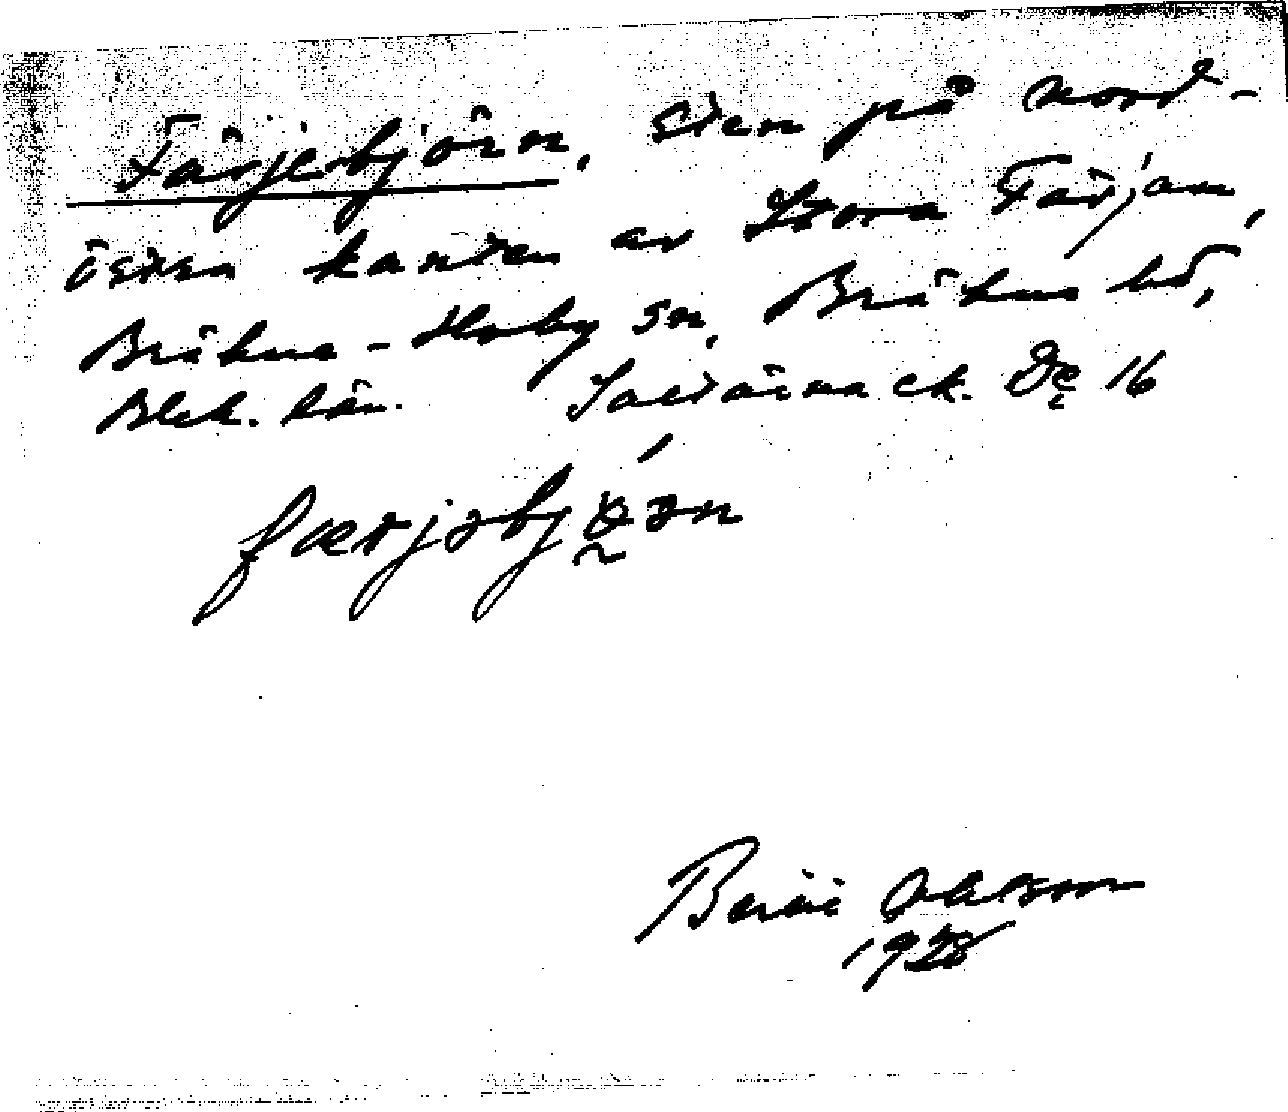 Färjebjörn, sten på nord-
östra kanten av Stora Färjan,
Bräkne-Hoby sn, Bräkne hd,
Blek. län. Saltärna ek. Dc 16
færjəbjɵ̰́ən
Bertil Ohlson
1928